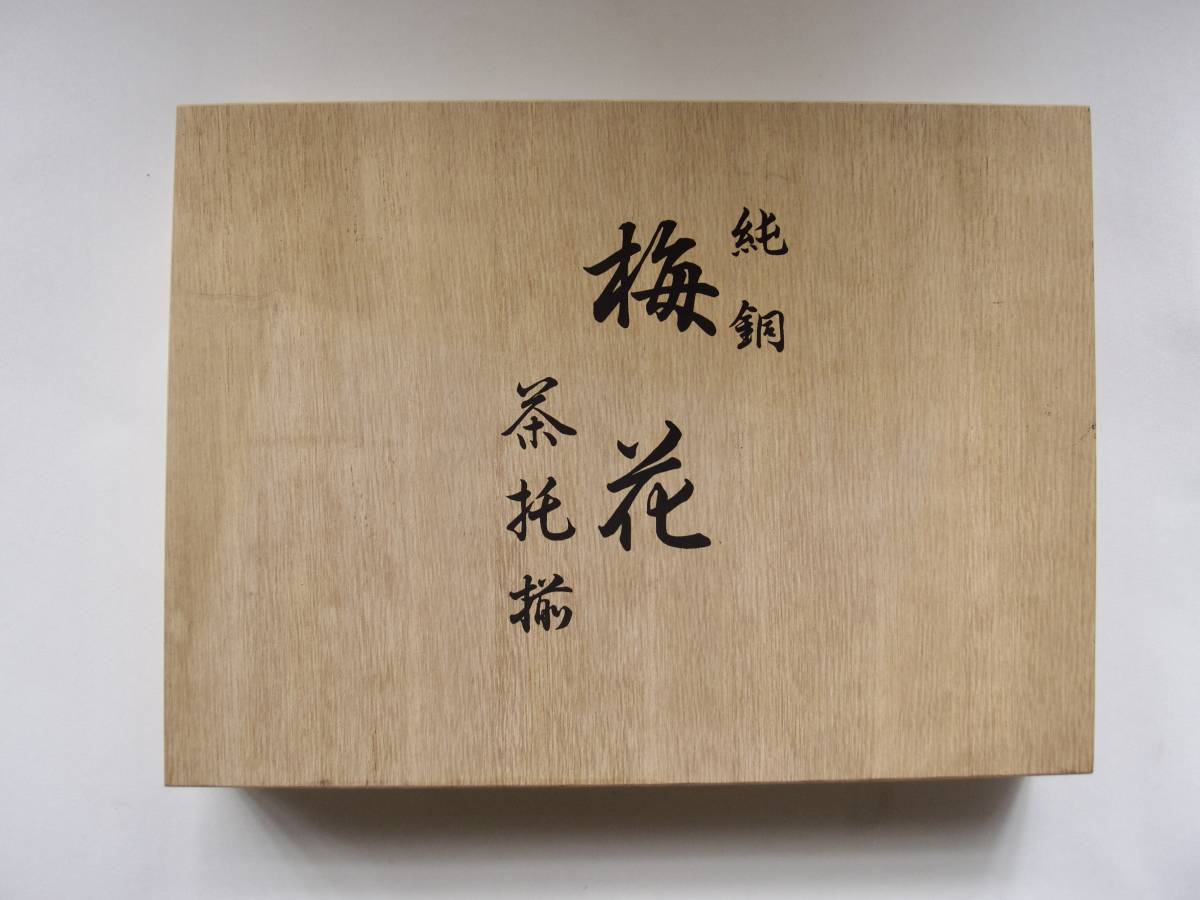 純銅
梅花
茶托揃